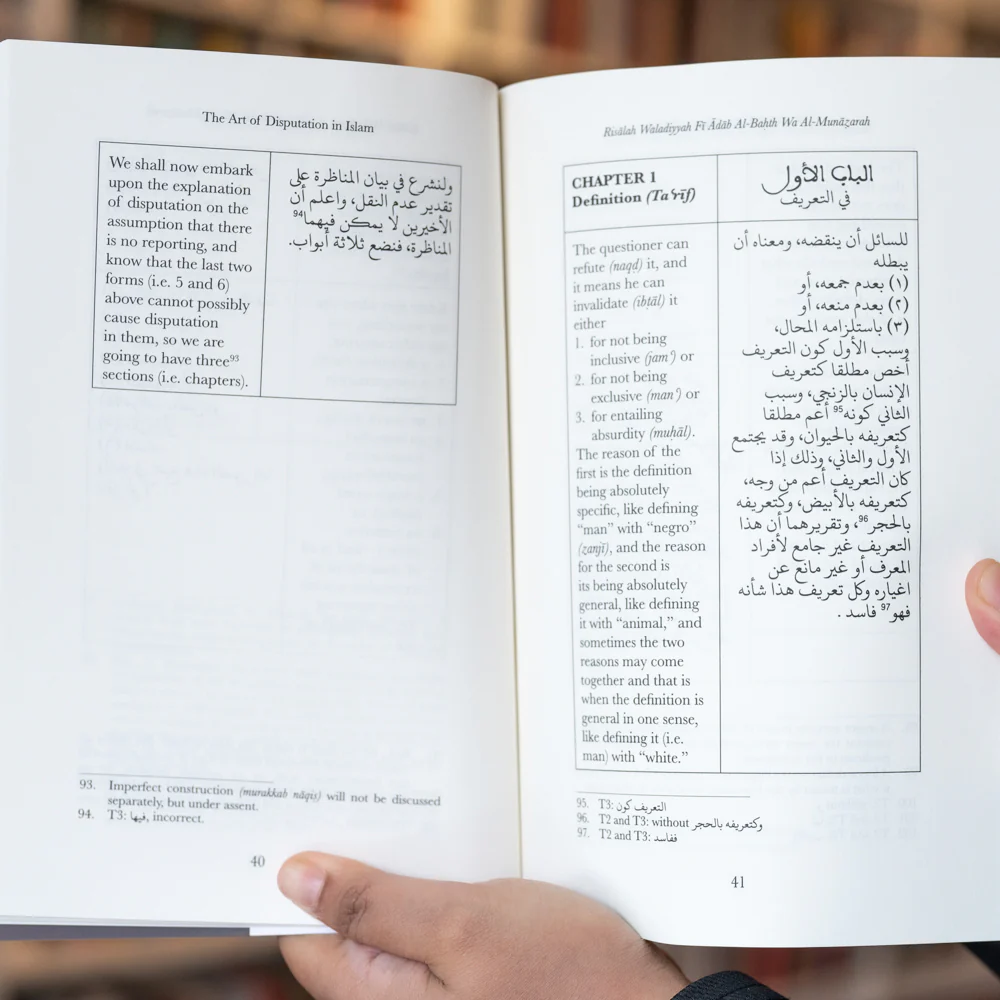 The Art of Disputation in Islam
We shall now embark
upon the explanation
of disputation on the
assumption that there
is no reporting, and
know that the last two
forms (i.e. 5 and 6)
above cannot possibly
cause disputation
in them, so we are
going to have three⁹³
sections (i.e. chapters).
ولنشرع في بيان المناظرة على
تقدير عدم النقل، واعلم أن
الأخيرين لا يمكن فيهما⁹⁴
المناظرة، فنضع ثلاثة أبواب.
93. Imperfect construction (murakkab nāqiṣ) will not be discussed
separately, but under assent.
94. T3: فيها, incorrect.
40
Risālah Waladiyyah Fī Ādāb Al-Baḥth Wa Al-Munāẓarah
CHAPTER 1
Definition (Taʿrīf)
الباب الأول
في التعريف
The questioner can
refute (naqḍ) it, and
it means he can
invalidate (ibṭāl) it
either
1. for not being
inclusive (jamʿ) or
2. for not being
exclusive (manʿ) or
3. for entailing
absurdity (muḥāl).
The reason of the
first is the definition
being absolutely
specific, like defining
“man” with “negro”
(zanjī), and the reason
for the second is
its being absolutely
general, like defining
it with “animal,” and
sometimes the two
reasons may come
together and that is
when the definition is
general in one sense,
like defining it (i.e.
man) with “white.”
للسائل أن ينقضه، ومعناه أن
يبطله
(١) بعدم جمعه، أو
(٢) بعدم منعه، أو
(٣) باستلزامه المحال،
وسبب الأول كون التعريف
أخص مطلقا كتعريف
الإنسان بالزنجي، وسبب
الثاني كونه⁹⁵ أعم مطلقا
كتعريفه بالحيوان، وقد يجتمع
الأول والثاني، وذلك إذا
كان التعريف أعم من وجه،
كتعريفه بالأبيض، وكتعريفه
بالحجر⁹⁶، وتقريرهما أن هذا
التعريف غير جامع لأفراد
المعرف أو غير مانع عن
اغياره وكل تعريف هذا شأنه
فهو⁹⁷ فاسد .
95. T3: التعريف كون
96. T2 and T3: without وكتعريفه بالحجر
97. T2 and T3: ففاسد
41